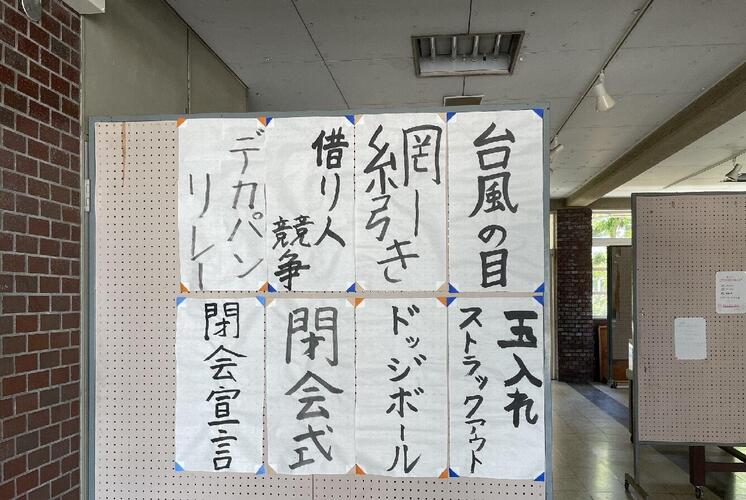 台風の目
綱引き
借り人
競争
デカパン
リレー
玉入れ
ストラックアウト
ドッジボール
閉会式
閉会宣言